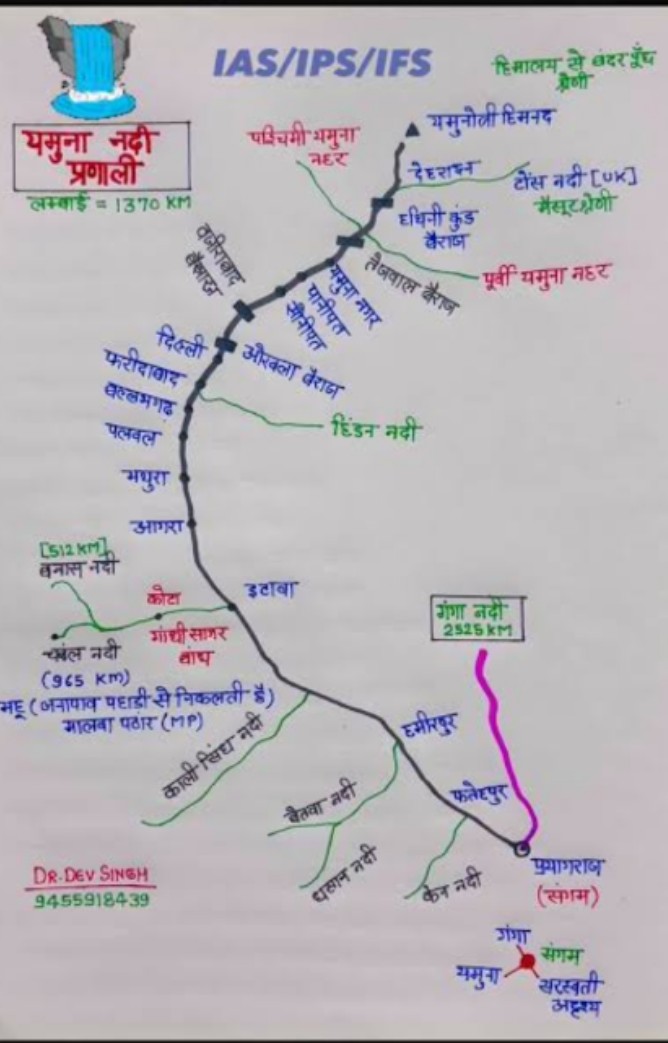 IAS/IPS/IFS
हिमालय से बंदर पूँछ
श्रेणी
यमुना नदी
प्रणाली
लम्बाई = 1370 KM
यमुनोत्री हिमनद
पश्चिमी यमुना
नहर
देहरादून
टोंस नदी [UK]
मैसूर श्रेणी
हथिनी कुंड
बैराज
तेजवाल बैराज
पूर्वी यमुना नहर
यमुना नगर
पानीपत
सोनीपत
वजीराबाद
बैराज
दिल्ली
ओखला बैराज
फरीदाबाद
बल्लभगढ़
पलवल
हिंडन नदी
मथुरा
आगरा
[512 KM]
बनास नदी
कोटा
इटावा
गांधी सागर
बांध
चंबल नदी
(965 KM)
महू (जनापाव पहाडी से निकलती है)
मालवा पठार (MP)
गंगा नदी
2525 KM
काली सिंध नदी
हमीरपुर
बेतवा नदी
धसान नदी
फतेहपुर
केन नदी
प्रयागराज
(संगम)
DR. DEV SINGH
9455918439
गंगा
संगम
यमुना
सरस्वती
अदृश्य